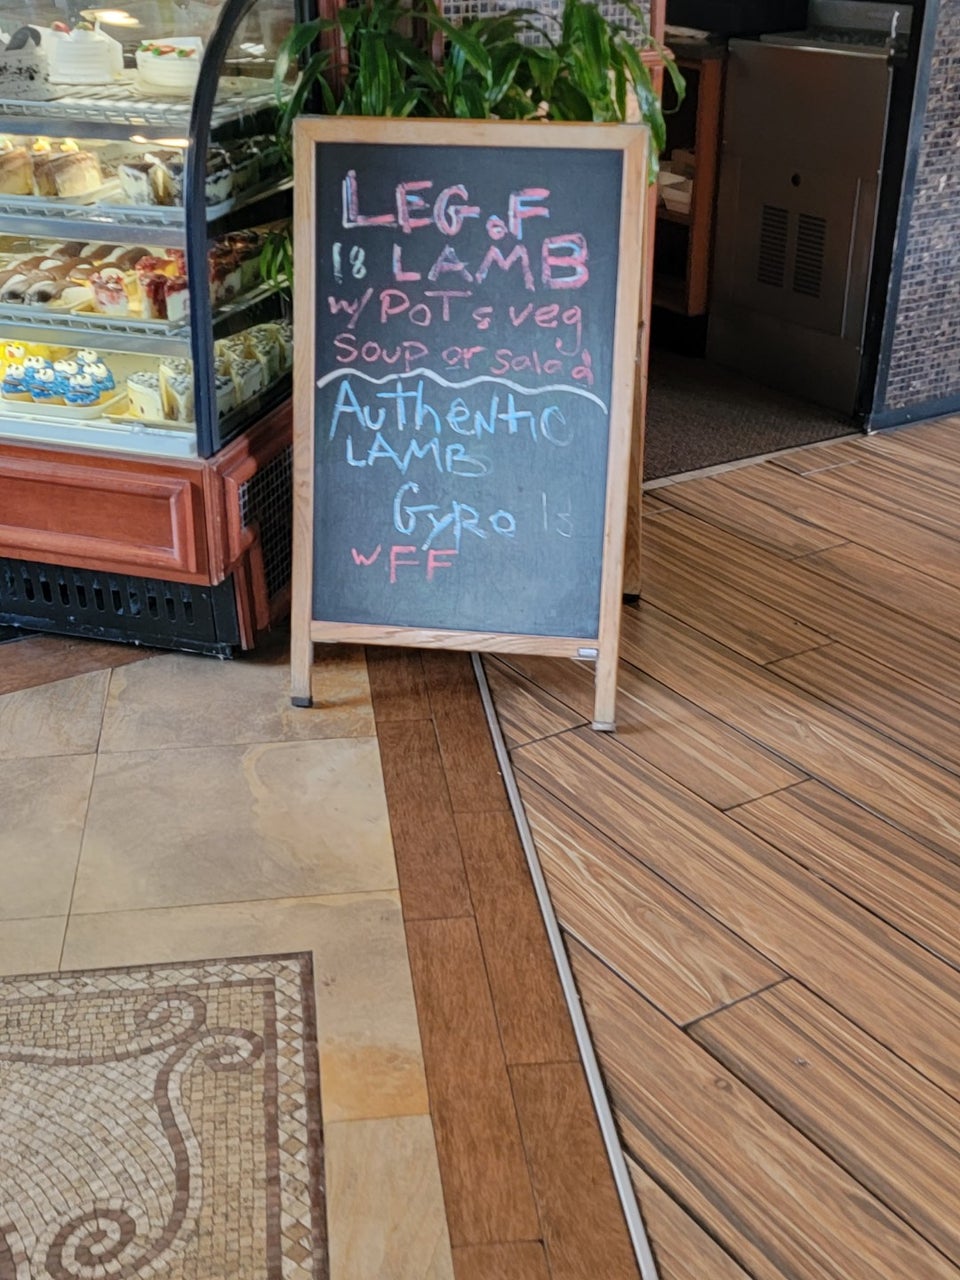 LEG oF
18 LAMB
w/ POT & veg
Soup or salad
AuthentiC
LAMB
GyRo 15
wFF